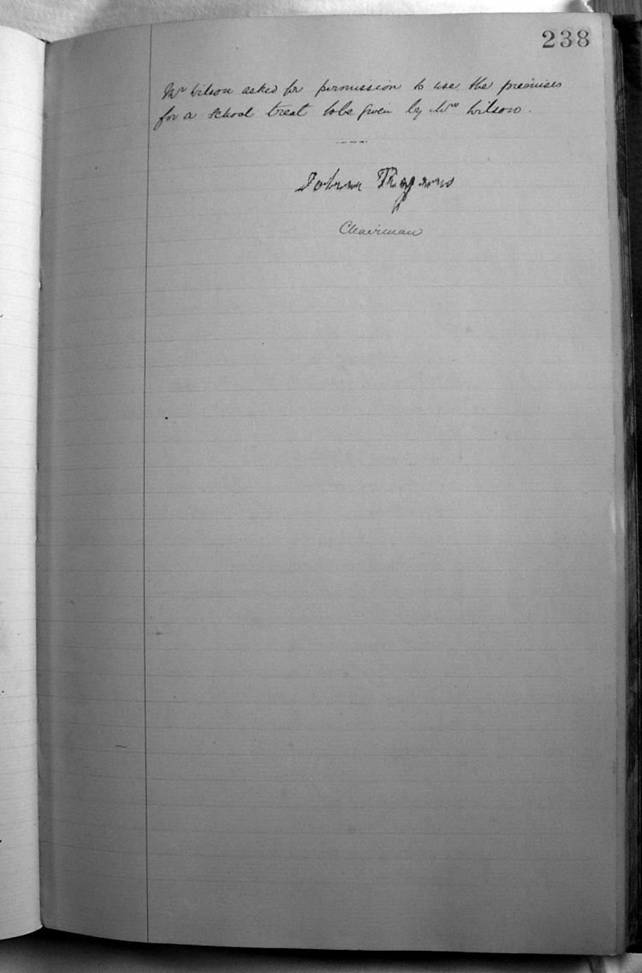 238
Mr Wilson asked for permission to use the premises
for a school treat to be given by Mrs Wilson.
John
Chairman